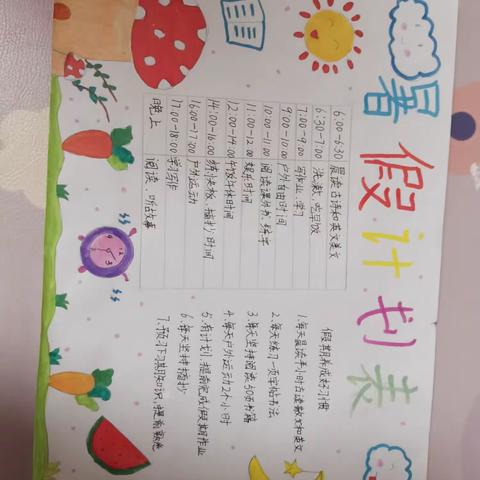 暑假计划表
6:00-6:30 晨读古诗和英文美文
6:30-7:00 洗漱、吃早饭
7:00-9:00 写作业、学习
9:00-10:00 户外自由时间
10:00-11:00 阅读课外书、练字
11:00-12:00 娱乐时间
12:00-14:00 午饭午休时间
14:00-16:00 时间
16:00-17:00 户外运动
17:00-18:00 学习写作
晚上 阅读、听故事
假期养成好习惯
1.每天晨读半小时古诗散文和英文
2.每天练习一项字帖书法
3.每天坚持阅读50页书籍
4.每天户外运动2个小时
5.有计划提前完成假期作业
6.每天坚持
7.预习下学期知识,提前